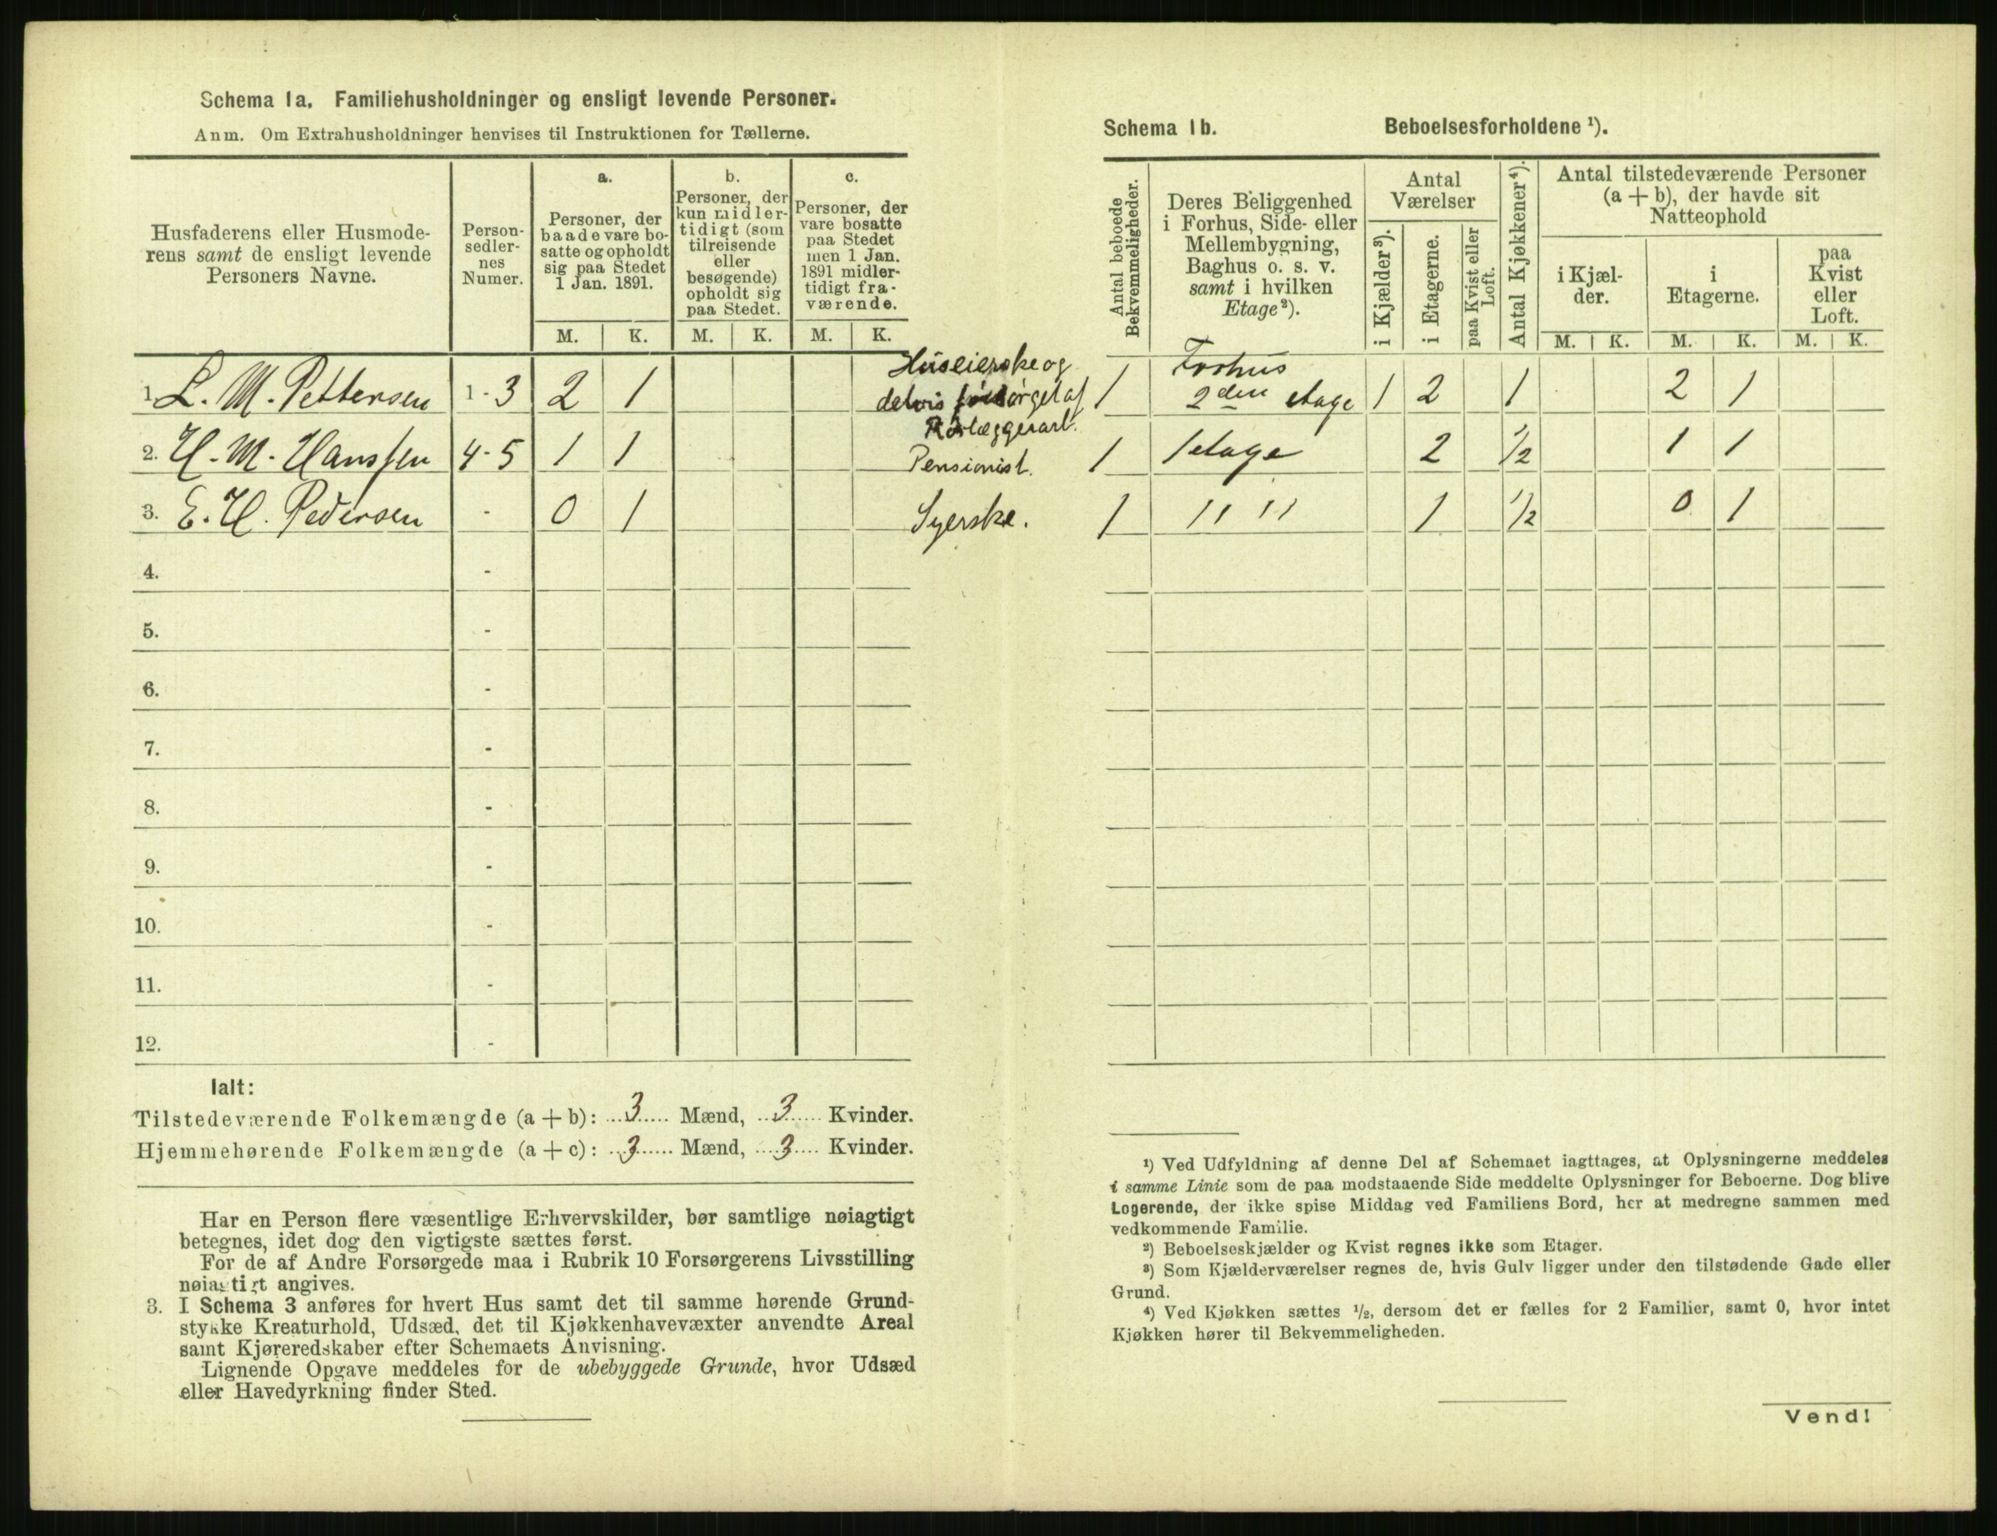 Schema 1a. Familiehusholdninger og ensligt levende Personer.
Anm. Om Extrahusholdninger henvises til Instruktionen for Tællerne.
Husfaderens eller Husmode-
rens samt de ensligt levende
Personers Navne.
Person-
sedler-
nes
Numer.
a.
Personer, der
baade vare bo-
satte og opholdt
sig paa Stedet
1 Jan. 1891.
b.
Personer, der
kun midler-
tidigt (som
tilreisende
eller
besøgende)
opholdt sig
paa Stedet.
c.
Personer, der
vare bosatte
paa Stedet
men 1 Jan.
1891 midler-
tidigt fra-
værende.
M. K. M. K. M. K.
1. L. M. Pettersen 1-3 2 1 Huseierske og
delvis forsørget af
Rørlæggerarb.
2. H. M. Hanssen 4-5 1 1 Pensionist.
3. E. H. Pedersen - 0 1 Syerske.
4. -
5. -
6. -
7. -
8. -
9. -
10. -
11. -
12. -
Ialt:
Tilstedeværende Folkemængde (a+b): 3 Mænd, 3 Kvinder.
Hjemmehørende Folkemængde (a+c): 3 Mænd, 3 Kvinder.
Har en Person flere væsentlige Erhvervskilder, bør samtlige nøiagtigt
betegnes, idet dog den vigtigste sættes først.
For de af Andre Forsørgede maa i Rubrik 10 Forsørgerens Livsstilling
nøiagtigt angives.
3. I Schema 3 anføres for hvert Hus samt det til samme hørende Grund-
stykke Kreaturhold, Udsæd, det til Kjøkkenhavevæxter anvendte Areal
samt Kjøreredskaber efter Schemaets Anvisning.
Lignende Opgave meddeles for de ubebyggede Grunde, hvor Udsæd
eller Havedyrkning finder Sted.
Schema 1b. Beboelsesforholdene ¹).
Antal beboede
Bekvemmeligheder.
Deres Beliggenhed
i Forhus, Side- eller
Mellembygning,
Baghus o. s. v.
samt i hvilken
Etage ²).
Antal
Værelser
i Kjælder ³).
i Etagerne.
paa Kvist eller
Loft.
Antal Kjøkkener ⁴).
Antal tilstedeværende Personer
(a+b), der havde sit
Natteophold
i Kjæl-
der.
i
Etagerne.
paa
Kvist
eller
Loft.
M. K. M. K. M. K.
1 Forhus
2den etage 1 2 1 2 1
1 1 etage 2 1/2 1 1
1 11 11 1 1/2 0 1
¹) Ved Udfyldning af denne Del af Schemaet iagttages, at Oplysningerne meddeles
i samme Linie som de paa modstaaende Side meddelte Oplysninger for Beboerne. Dog blive
Logerende, der ikke spise Middag ved Familiens Bord, her at medregne sammen med
vedkommende Familie.
²) Beboelseskjælder og Kvist regnes ikke som Etager.
³) Som Kjælderværelser regnes de, hvis Gulv ligger under den tilstødende Gade eller
Grund.
⁴) Ved Kjøkken sættes ½, dersom det er fælles for 2 Familier, samt 0, hvor intet
Kjøkken hører til Bekvemmeligheden.
Vend!